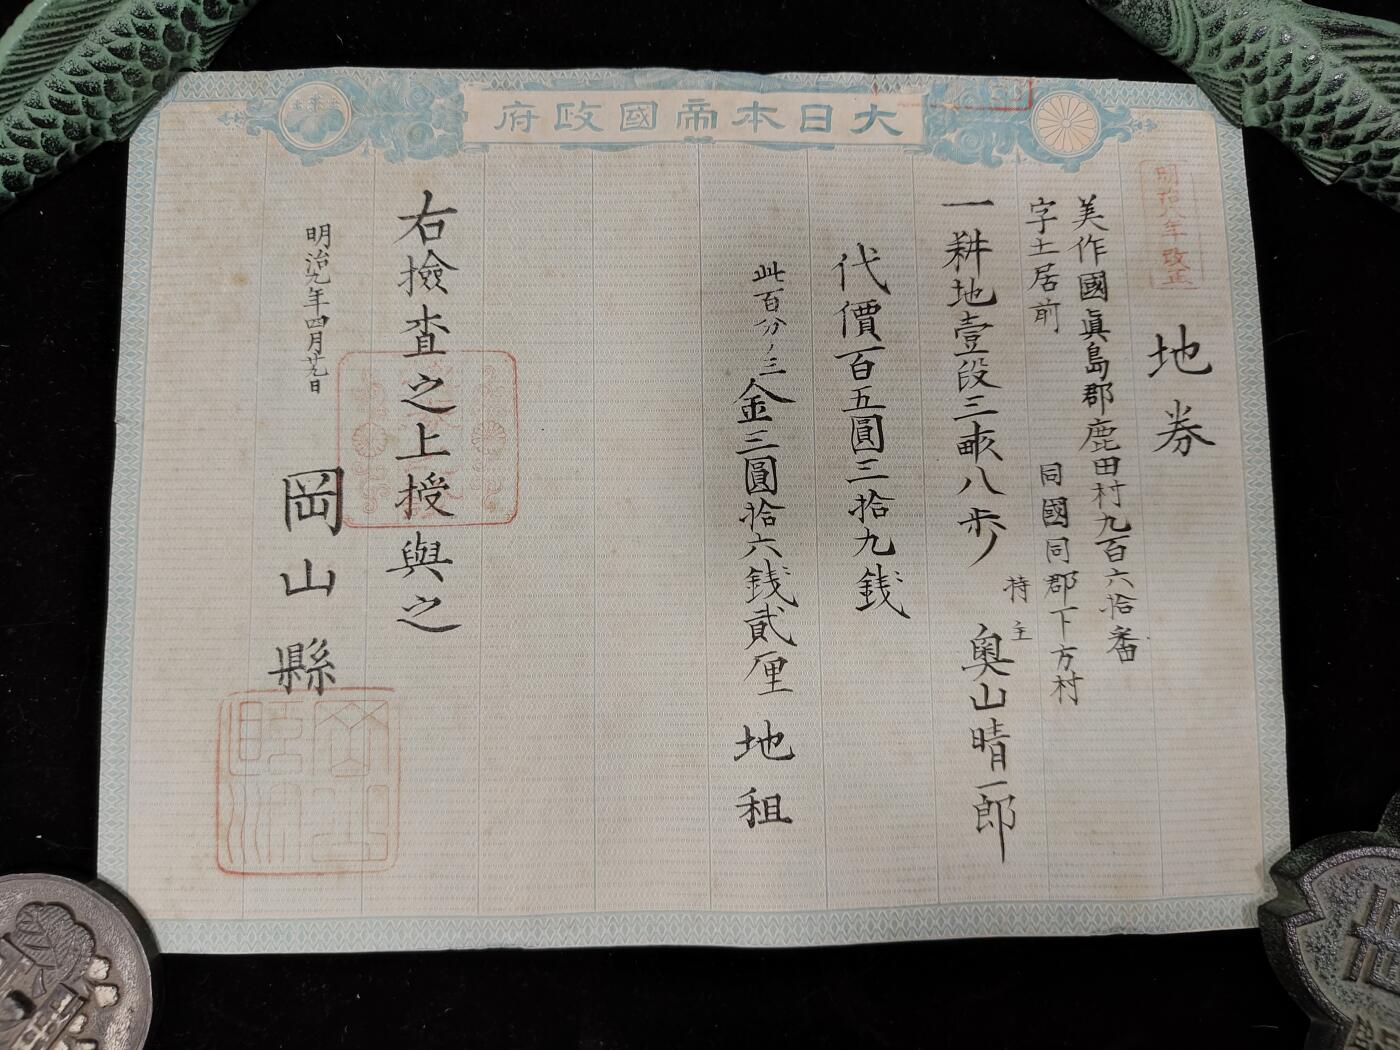 大日本帝國政府
明治八年改正
地券
美作國眞島郡鹿田村九百六拾番
字土居前
同國同郡下方村
一耕地壹段三畝八歩
持主
奥山晴一郎
代價百五圓三拾九錢
此百分ノ三
金三圓拾六錢貳厘 地租
右檢査之上授與之
明治九年四月廿九日
岡山縣